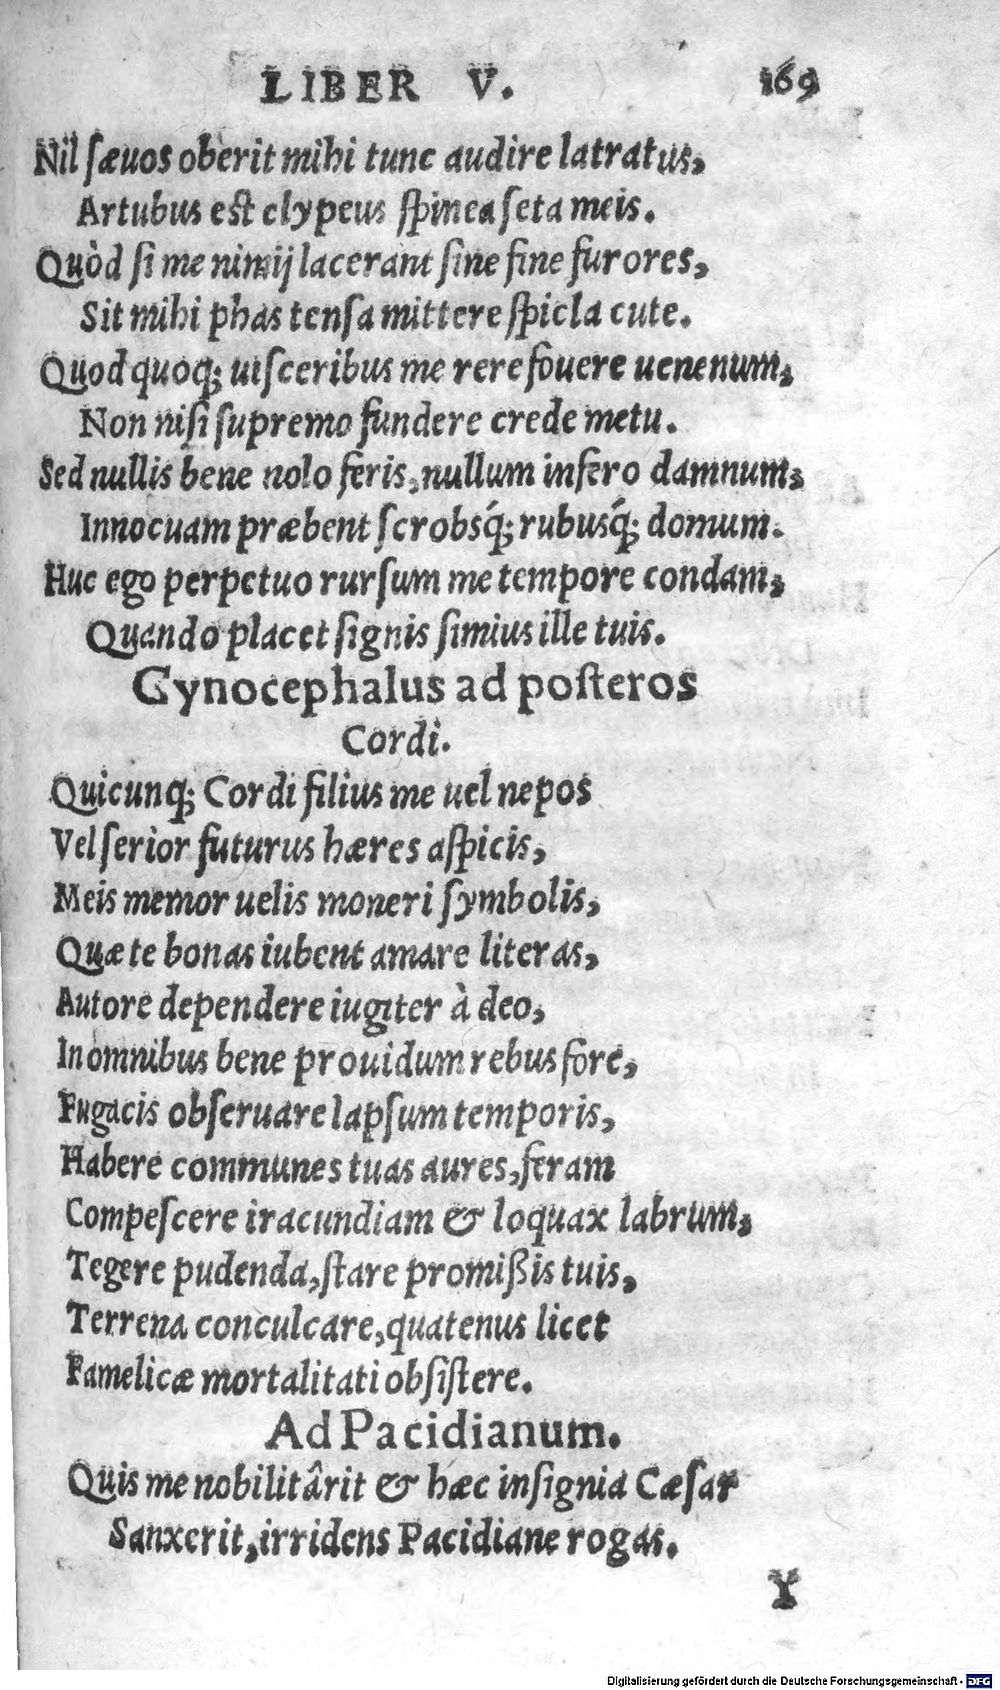 LIBER V. 169
Nil ſæuos oberit mihi tunc audire latratus,
Artubus est clypeus ſpinea ſeta meis.
Quòd ſi me nimij lacerant ſine fine furores,
Sit mihi phas tenſa mittere ſpicla cute.
Quod quoq; uiſceribus me rere fouere uenenum,
Non niſi ſupremo fundere crede metu.
Sed nullis bene nolo feris, nullum infero damnum,
Innocuam præbent ſcrobsq́; rubusq́; domum.
Huc ego perpetuo rurſum me tempore condam,
Quando placet ſignis ſimius ille tuis.
Gynocephalus ad poſteros
Cordi.
Quicunq; Cordi filius me uel nepos
Vel ſerior futurus hæres aſpicis,
Meis memor uelis moneri ſymbolis,
Quæ te bonas iubent amare literas,
Autore dependere iugiter à deo,
In omnibus bene prouidum rebus fore,
Fugacis obſeruare lapſum temporis,
Habere communes tuas aures, feram
Compeſcere iracundiam & loquax labrum,
Tegere pudenda, ſtare promißis tuis,
Terrena conculcare, quatenus licet
Famelicæ mortalitati obſiſtere.
Ad Pacidianum.
Quis me nobilitârit & hæc inſignia Cæſar
Sanxerit, irridens Pacidiane rogas.
Y
Digitalisierung gefördert durch die Deutsche Forschungsgemeinschaft - DFG